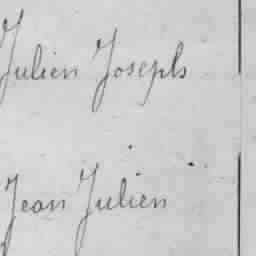 Julien Joseph
Jean Julien